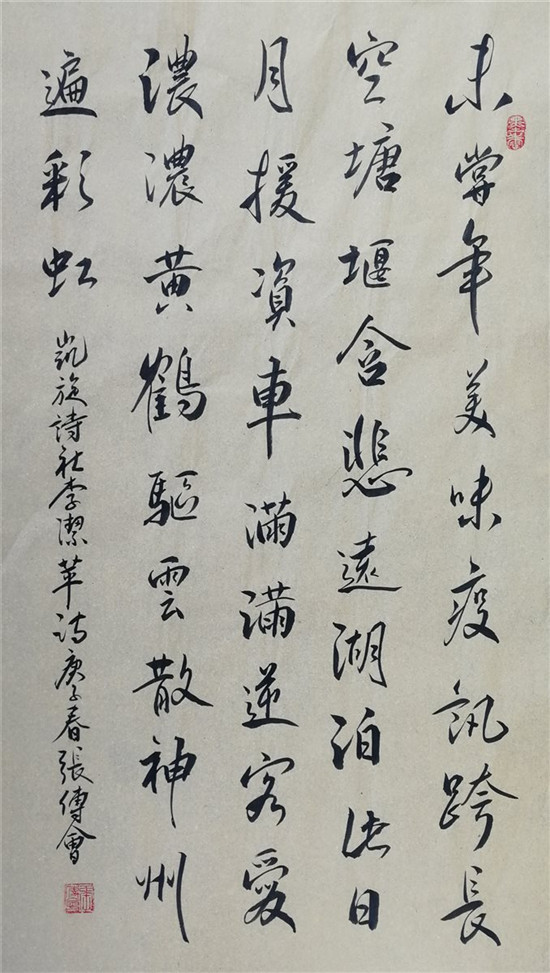 未嘗年美味疫訊跨長
空塘堰含悲遠湖泊日
月援資車滿滿逆客愛
濃濃黄鶴驅雲散神州
遍彩虹
凱旋詩社李潔苹詩庚子春張傳會